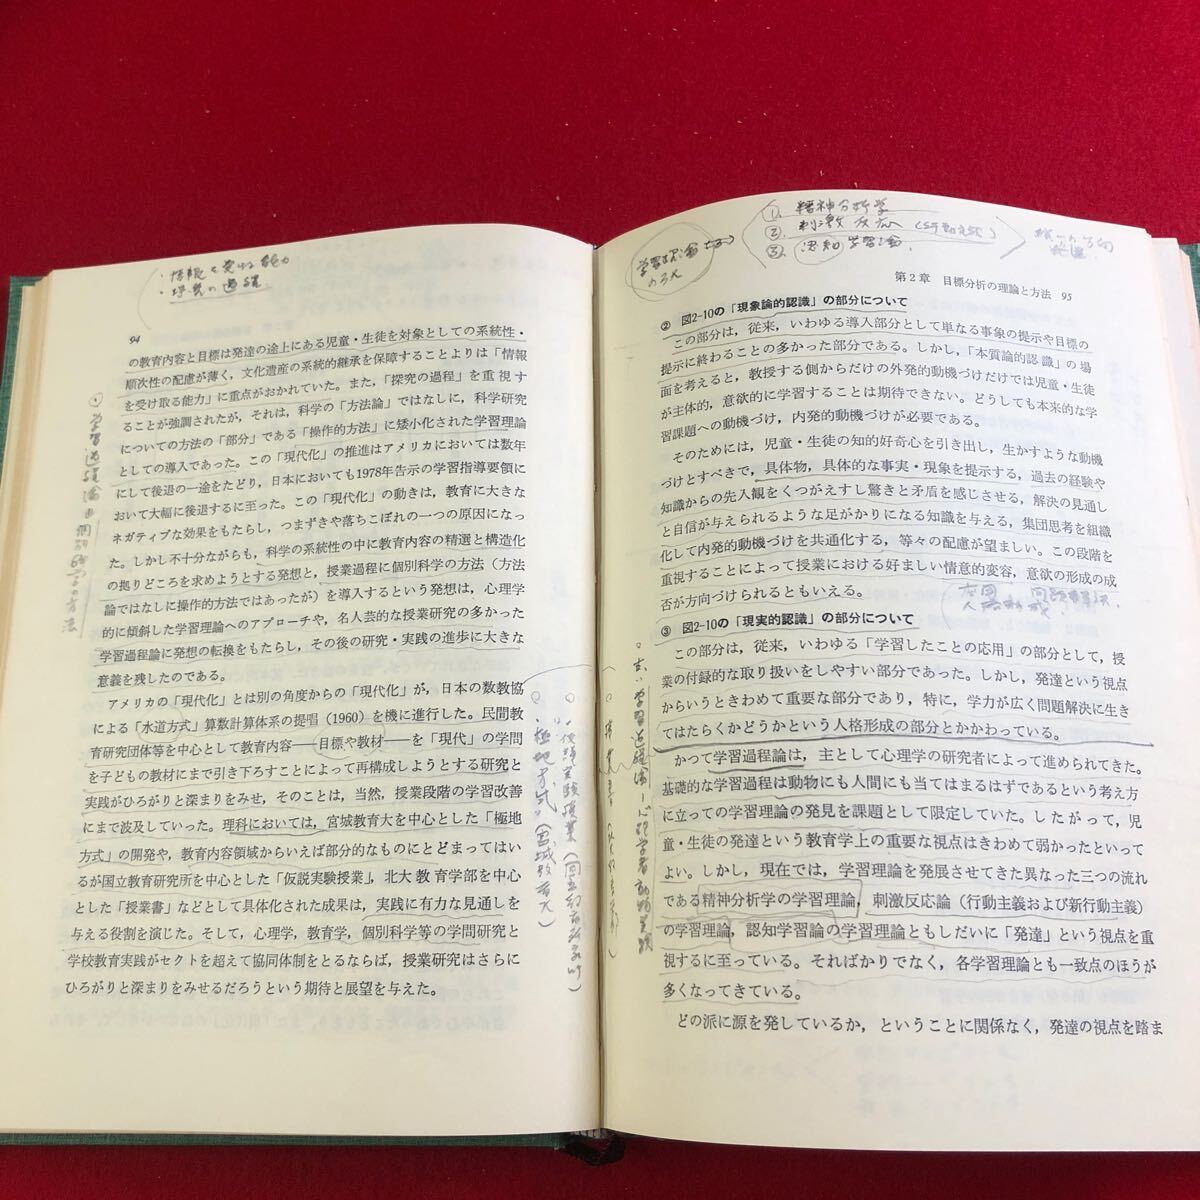 94
の教育内容と目標は発達の途上にある児童・生徒を対象としての系統性・
順次性の配慮が薄く，文化遺産の系統的継承を保障することよりは「情報
を受け取る能力」に重点がおかれていた。また，「探究の過程」を重視す
ることが強調されたが，それは，科学の「方法論」ではなしに，科学研究
についての方法の「部分」である「操作的方法」に矮小化された学習理論
としての導入であった。この「現代化」の推進はアメリカにおいては数年
にして後退の一途をたどり，日本においても1978年告示の学習指導要領に
おいて大幅に後退するに至った。この「現代化」の動きは，教育に大きな
ネガティブな効果をもたらし，つまずきや落ちこぼれの一つの原因になっ
た。しかし不十分ながらも，科学の系統性の中に教育内容の精選と構造化
の拠りどころを求めようとする発想と，授業過程に個別科学の方法（方法
論ではなしに操作的方法ではあったが）を導入するという発想は，心理学
的に傾斜した学習理論へのアプローチや，名人芸的な授業研究の多かった
学習過程論に発想の転換をもたらし，その後の研究・実践の進歩に大きな
意義を残したのである。
アメリカの「現代化」とは別の角度からの「現代化」が，日本の数教協
による「水道方式」算数計算体系の提唱（1960）を機に進行した。民間教
育研究団体等を中心として教育内容──目標や教材──を「現代」の学問
を子どもの教材にまで引き下ろすことによって再構成しようとする研究と
実践がひろがりと深まりをみせ，そのことは，当然，授業段階の学習改善
にまで波及していった。理科においては，宮城教育大を中心とした「極地
方式」の開発や，教育内容領域からいえば部分的なものにとどまってはい
るが国立教育研究所を中心とした「仮説実験授業」，北大教育学部を中心
とした「授業書」などとして具体化された成果は，実践に有力な見通しを
与える役割を演じた。そして，心理学，教育学，個別科学等の学問研究と
学校教育実践がセクトを超えて協同体制をとるならば，授業研究はさらに
ひろがりと深まりをみせるだろうという期待と展望を与えた。
・情報を受ける能力
・探究の過程
① 精神分析学
② 刺激反応
③ 認知学習論
学習理論
第2章 目標分析の理論と方法 95
② 図2-10の「現象論的認識」の部分について
この部分は，従来，いわゆる導入部分として単なる事象の提示や目標の
提示に終わることの多かった部分である。しかし，「本質論的認識」の場
面を考えると，教授する側からだけの外発的動機づけだけでは児童・生徒
が主体的，意欲的に学習することは期待できない。どうしても本来的な学
習課題への動機づけ，内発的動機づけが必要である。
そのためには，児童・生徒の知的好奇心を引き出し，生かすような動機
づけとすべきで，具体物，具体的な事実・現象を提示する，過去の経験や
知識からの先入観をくつがえすし驚きと矛盾を感じさせる，解決の見通し
と自信が与えられるような足がかりになる知識を与える，集団思考を組織
化して内発的動機づけを共通化する，等々の配慮が望ましい。この段階を
重視することによって授業における好ましい情意的変容，意欲の形成の成
否が方向づけられるともいえる。
③ 図2-10の「現実的認識」の部分について
この部分は，従来，いわゆる「学習したことの応用」の部分として，授
業の付録的な取り扱いをしやすい部分であった。しかし，発達という視点
からいうときわめて重要な部分であり，特に，学力が広く問題解決に生き
てはたらくかどうかという人格形成の部分とかかわっている。
かつて学習過程論は，主として心理学の研究者によって進められてきた。
基礎的な学習過程は動物にも人間にも当てはまるはずであるという考え方
に立っての学習理論の発見を課題として限定していた。したがって，児
童・生徒の発達という教育学上の重要な視点はきわめて弱かったといって
よい。しかし，現在では，学習理論を発展させてきた異なった三つの流れ
である精神分析学の学習理論，刺激反応論（行動主義および新行動主義）
の学習理論，認知学習論の学習理論ともしだいに「発達」という視点を重
視するに至っている。そればかりでなく，各学習理論とも一致点のほうが
多くなってきている。
どの派に源を発しているか，ということに関係なく，発達の視点を踏ま